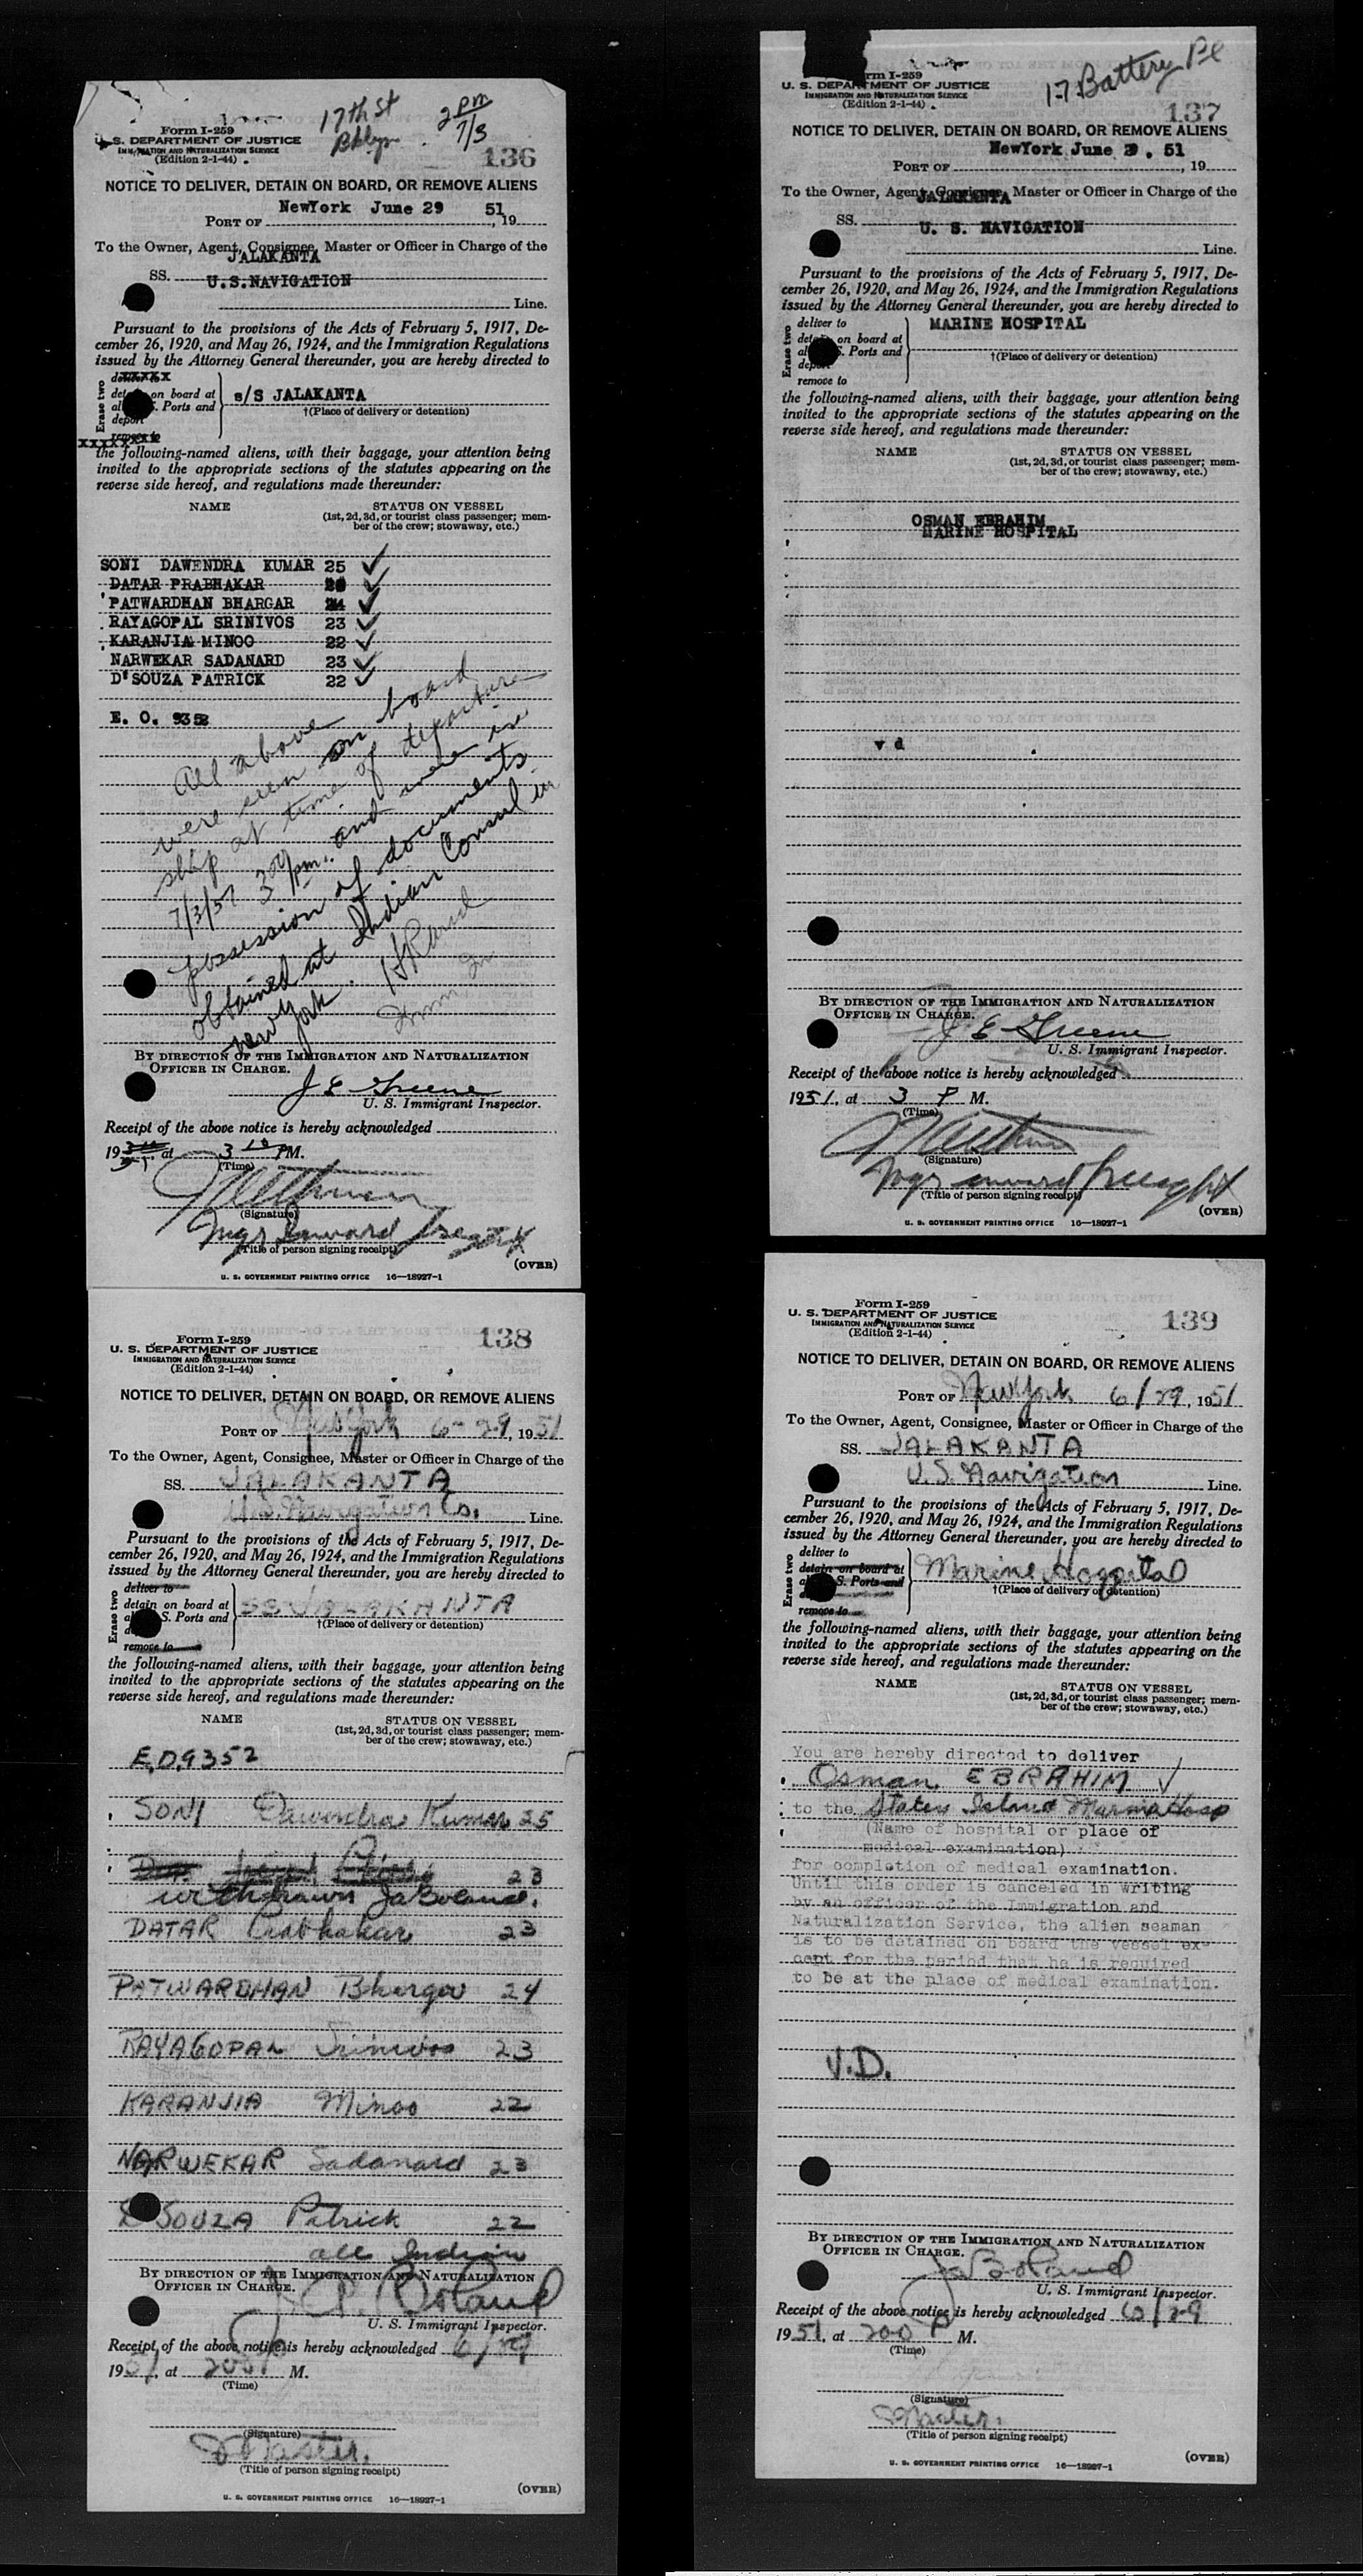 17th St
Bklyn.
2 pm
7/3
Form I-259
U. S. DEPARTMENT OF JUSTICE
IMMIGRATION AND NATURALIZATION SERVICE
(Edition 2-1-44)
136
NOTICE TO DELIVER, DETAIN ON BOARD, OR REMOVE ALIENS
NewYork June 29 51
PORT OF , 19
To the Owner, Agent, Consignee, Master or Officer in Charge of the
JALAKANTA
SS.
U.S.NAVIGATION
Line.
Pursuant to the provisions of the Acts of February 5, 1917, De-
cember 26, 1920, and May 26, 1924, and the Immigration Regulations
issued by the Attorney General thereunder, you are hereby directed to
Erase two
deliver to
detain on board at
all U. S. Ports and
deport
remove to
xxxxxxxx
s/S JALAKANTA
†(Place of delivery or detention)
the following-named aliens, with their baggage, your attention being
invited to the appropriate sections of the statutes appearing on the
reverse side hereof, and regulations made thereunder:
NAME STATUS ON VESSEL
(1st, 2d, 3d, or tourist class passenger; mem-
ber of the crew; stowaway, etc.)
SONI DAWENDRA KUMAR 25 ✓
DATAR PRABHAKAR ✓
PATWARDHAN BHARGAR 24 ✓
RAYAGOPAL SRINIVOS 23 ✓
KARANJIA MINOO 22 ✓
NARWEKAR SADANARD 23 ✓
D'SOUZA PATRICK 22 ✓
E. O. 9352
All above
were seen on board
ship at time of departure
7/3/51 3 pm. and were in
possession of documents
obtained at Indian Consul in
New York.
BY DIRECTION OF THE IMMIGRATION AND NATURALIZATION
OFFICER IN CHARGE.
J E Greene
U. S. Immigrant Inspector.
Receipt of the above notice is hereby acknowledged
19 51, at 3 10 P M.
(Time)
(Signature)
Mgr Inward Freight
(Title of person signing receipt)
(OVER)
U. S. GOVERNMENT PRINTING OFFICE 16—18927-1
17 Battery Pl
Form I-259
U. S. DEPARTMENT OF JUSTICE
IMMIGRATION AND NATURALIZATION SERVICE
(Edition 2-1-44)
137
NOTICE TO DELIVER, DETAIN ON BOARD, OR REMOVE ALIENS
NewYork June 29. 51
PORT OF , 19
To the Owner, Agent, Consignee, Master or Officer in Charge of the
JALAKANTA
SS.
U. S. NAVIGATION
Line.
Pursuant to the provisions of the Acts of February 5, 1917, De-
cember 26, 1920, and May 26, 1924, and the Immigration Regulations
issued by the Attorney General thereunder, you are hereby directed to
Erase two
deliver to
detain on board at
all U. S. Ports and
deport
remove to
MARINE HOSPITAL
†(Place of delivery or detention)
the following-named aliens, with their baggage, your attention being
invited to the appropriate sections of the statutes appearing on the
reverse side hereof, and regulations made thereunder:
NAME STATUS ON VESSEL
(1st, 2d, 3d, or tourist class passenger; mem-
ber of the crew; stowaway, etc.)
OSMAN EBRAHIM
MARINE HOSPITAL
v d
BY DIRECTION OF THE IMMIGRATION AND NATURALIZATION
OFFICER IN CHARGE.
J E Greene
U. S. Immigrant Inspector.
Receipt of the above notice is hereby acknowledged
1951, at 3 P M.
(Time)
(Signature)
Mgr inward freight
(Title of person signing receipt)
(OVER)
U. S. GOVERNMENT PRINTING OFFICE 16—18927-1
Form I-259
U. S. DEPARTMENT OF JUSTICE
IMMIGRATION AND NATURALIZATION SERVICE
(Edition 2-1-44)
138
NOTICE TO DELIVER, DETAIN ON BOARD, OR REMOVE ALIENS
PORT OF New York 6-29, 1951
To the Owner, Agent, Consignee, Master or Officer in Charge of the
SS. JALAKANTA
U.S. Navigation Co. Line.
Pursuant to the provisions of the Acts of February 5, 1917, De-
cember 26, 1920, and May 26, 1924, and the Immigration Regulations
issued by the Attorney General thereunder, you are hereby directed to
Erase two
deliver to
detain on board at
all U. S. Ports and
remove to
SS JALAKANTA
†(Place of delivery or detention)
the following-named aliens, with their baggage, your attention being
invited to the appropriate sections of the statutes appearing on the
reverse side hereof, and regulations made thereunder:
NAME STATUS ON VESSEL
(1st, 2d, 3d, or tourist class passenger; mem-
ber of the crew; stowaway, etc.)
E.O. 9352
SONI Dawendra Kumar 25
23
withdrawn Ja Boland.
DATAR Prabhakar 23
PATWARDHAN Bhargav 24
RAYAGOPAL Srinivos 23
KARANJIA Minoo 22
NARWEKAR Sadanard 23
D SOUZA Patrick 22
all Indian
BY DIRECTION OF THE IMMIGRATION AND NATURALIZATION
OFFICER IN CHARGE.
Boland
U. S. Immigrant Inspector.
Receipt of the above notice is hereby acknowledged 6/29
1951, at 200 P M.
(Time)
(Signature)
Master.
(Title of person signing receipt)
(OVER)
U. S. GOVERNMENT PRINTING OFFICE 16—18927-1
Form I-259
U. S. DEPARTMENT OF JUSTICE
IMMIGRATION AND NATURALIZATION SERVICE
(Edition 2-1-44)
139
NOTICE TO DELIVER, DETAIN ON BOARD, OR REMOVE ALIENS
PORT OF New York 6/29, 1951
To the Owner, Agent, Consignee, Master or Officer in Charge of the
SS. JALAKANTA
U.S. Navigation Line.
Pursuant to the provisions of the Acts of February 5, 1917, De-
cember 26, 1920, and May 26, 1924, and the Immigration Regulations
issued by the Attorney General thereunder, you are hereby directed to
Erase two
deliver to
detain on board at
all U. S. Ports and
remove to
Marine Hospital
†(Place of delivery or detention)
the following-named aliens, with their baggage, your attention being
invited to the appropriate sections of the statutes appearing on the
reverse side hereof, and regulations made thereunder:
NAME STATUS ON VESSEL
(1st, 2d, 3d, or tourist class passenger; mem-
ber of the crew; stowaway, etc.)
You are hereby directed to deliver
Osman EBRAHIM ✓
to the Staten Island Marine Hosp
(Name of hospital or place of
medical examination)
for completion of medical examination.
Until this order is canceled in writing
by an officer of the Immigration and
Naturalization Service, the alien seaman
is to be detained on board the vessel ex-
cept for the period that he is required
to be at the place of medical examination.
V.D.
BY DIRECTION OF THE IMMIGRATION AND NATURALIZATION
OFFICER IN CHARGE.
Ja Boland
U. S. Immigrant Inspector.
Receipt of the above notice is hereby acknowledged 6/29
1951, at 200 P M.
(Time)
(Signature)
Master.
(Title of person signing receipt)
(OVER)
U. S. GOVERNMENT PRINTING OFFICE 16—18927-1